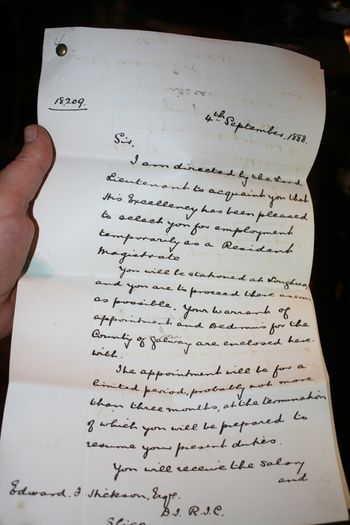 18209.
4th September, 1888.
Sir,
I am directed by the Lord
Lieutenant to acquaint you that
His Excellency has been pleased
to select you for employment
temporarily as a Resident
Magistrate
You will be stationed at Loughrea,
and you are to proceed there as soon
as possible. Your Warrant of
appointment and Dedimus for the
County of Galway are enclosed here-
with.
The appointment will be for a
limited period, probably not more
than three months, at the termination
of which you will be prepared to
resume your present duties.
You will receive the Salary
and
Edward. J. Hickson, Esqr.
D.I. R.I.C.
Sligo